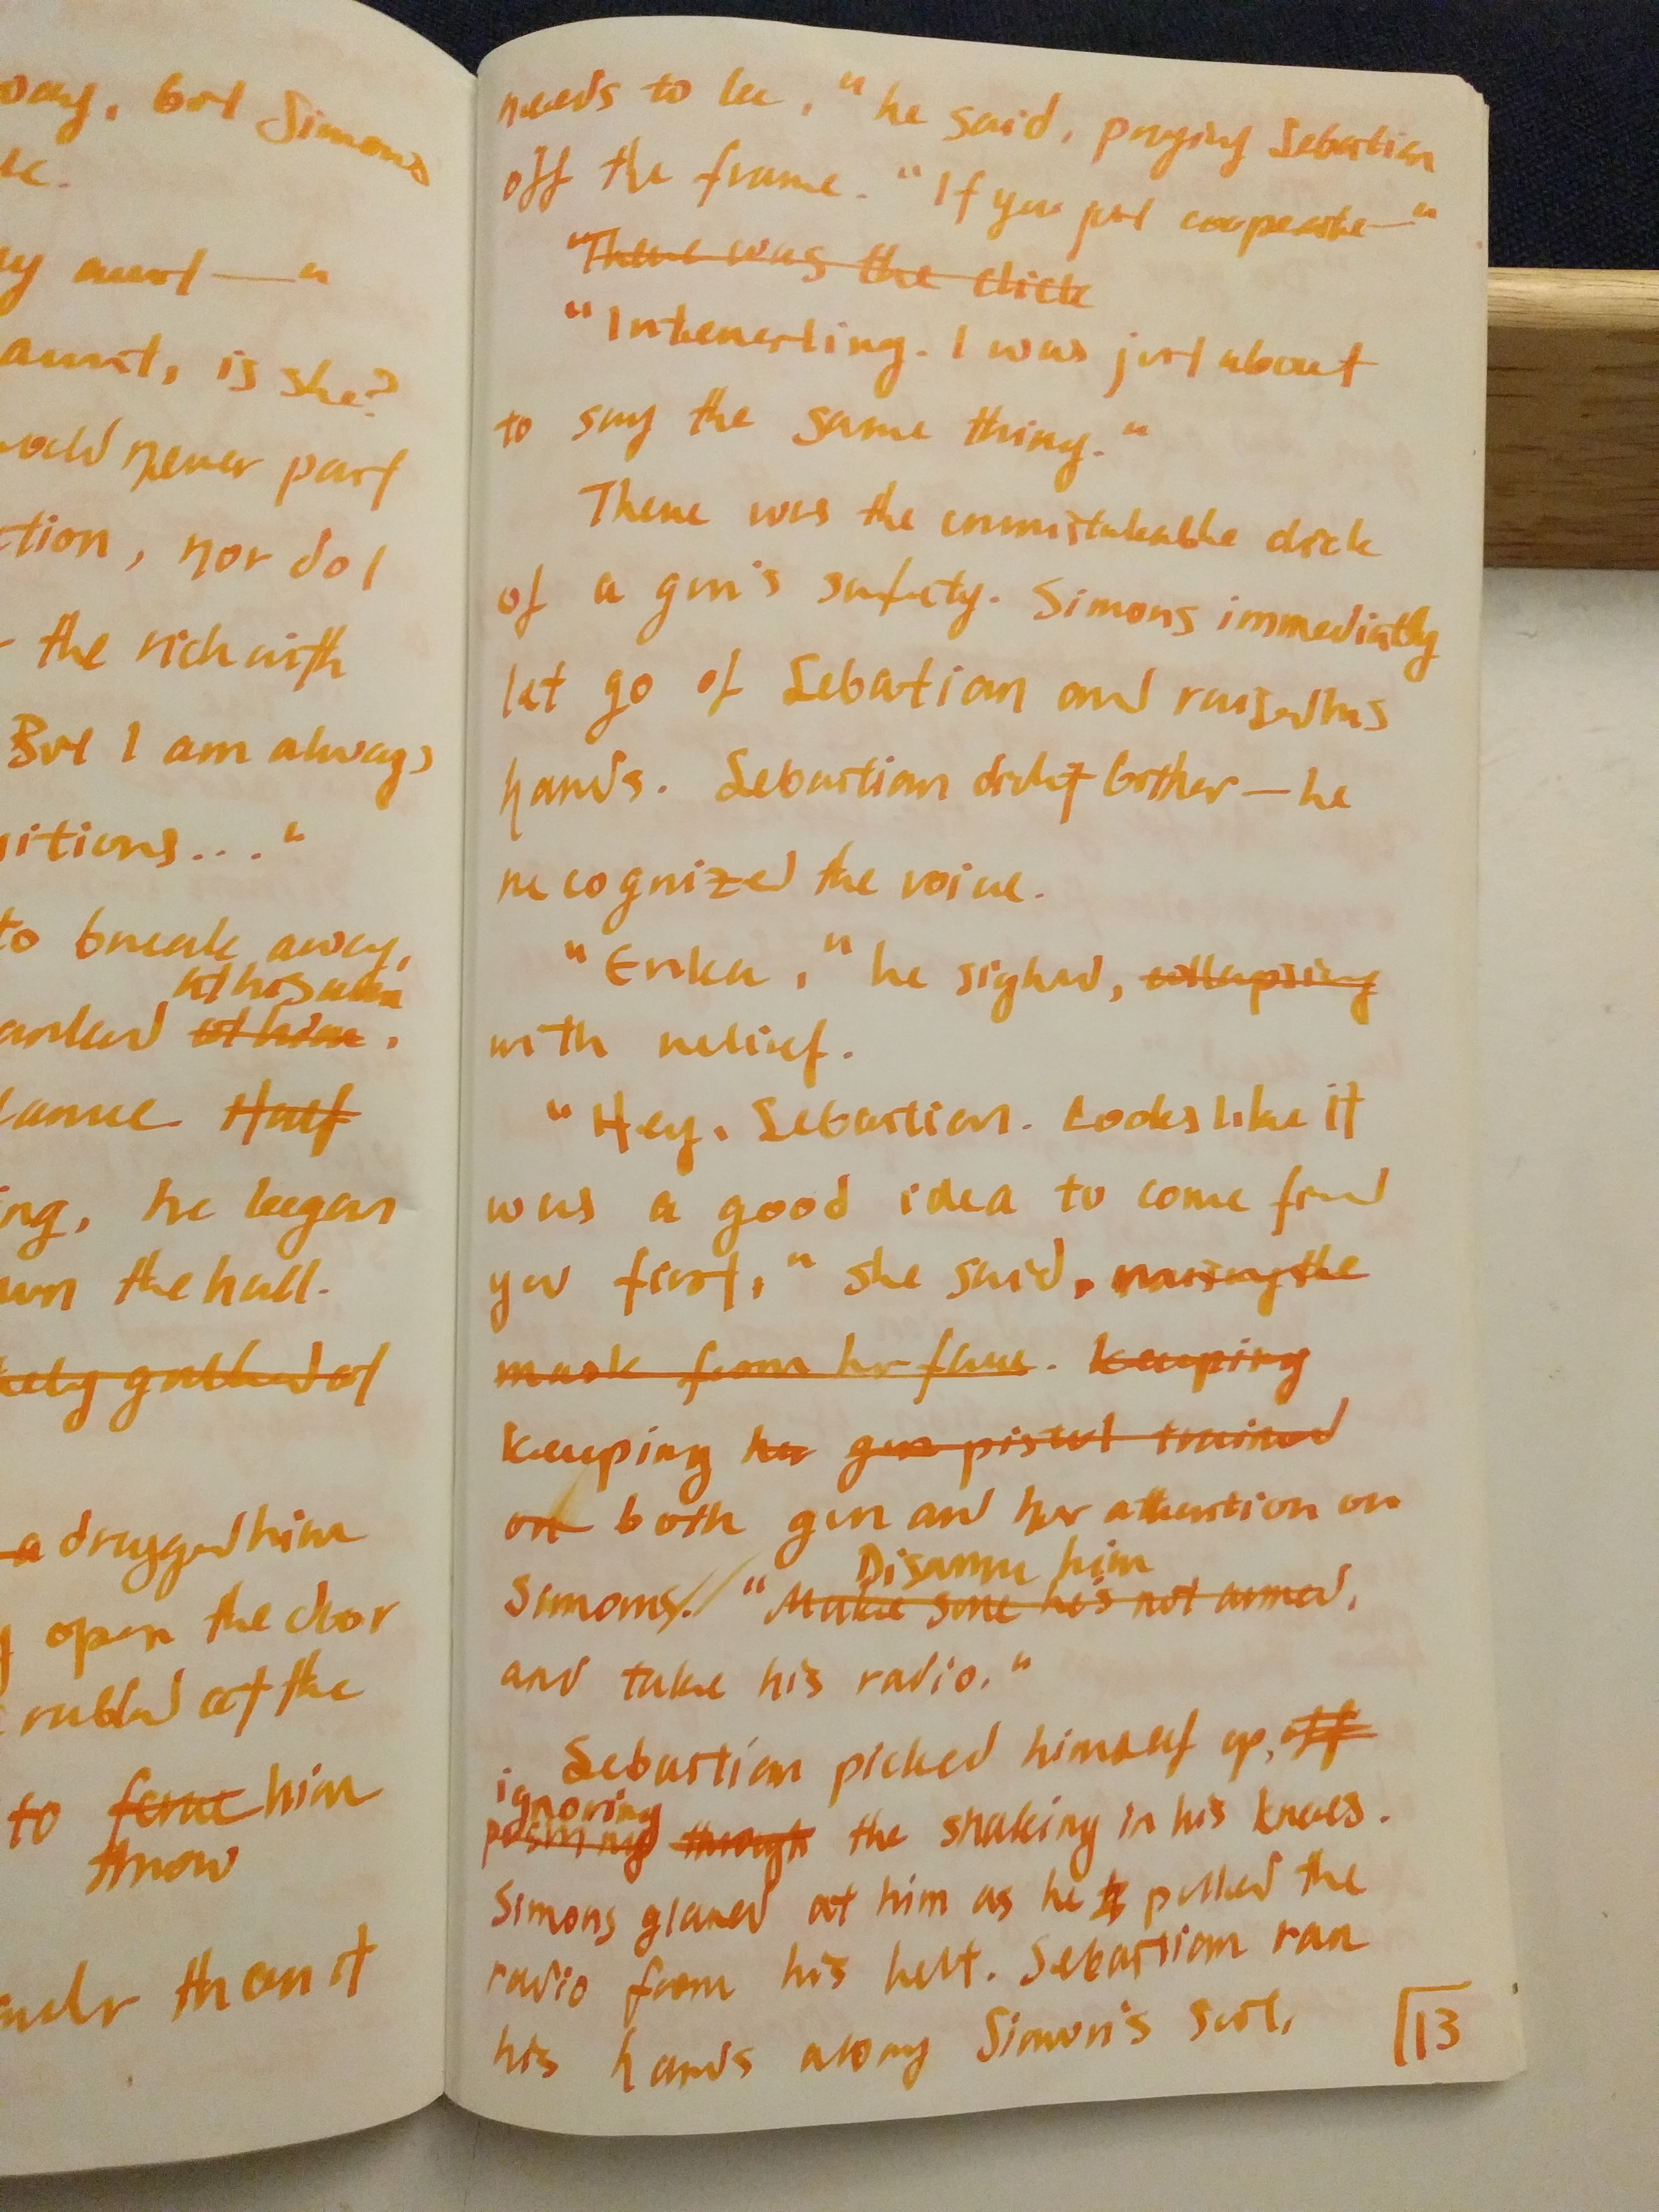 oay, but Simons
le.
y aunt —"
aunt, is she?
would never part
ction, nor do I
the rich with
But I am always
nitions..."
to break away,
at his
at him.
Half
ng, he began
wn the hall.
a dragged him
open the door
at the
to force him
throw
than it
needs to be," he said, prying Sebastian
off the frame. "If you just cooperate—"
"There was the click
"Interesting. I was just about
to say the same thing."
There was the unmistakable click
of a gun's safety. Simons immediatly
let go of Sebastian and raised his
hands. Sebastian didn't bother — he
recognized the voice.
"Erika," he sighed, collapsing
with relief.
"Hey, Sebastian. Looks like it
was a good idea to come find
you first," she said, raising the
mask from her face. keeping
keeping her gun pistol trained
on both gun and her attention on
Disarm him
Simons. "Make sure he's not armed,
and take his radio."
Sebastian picked himself up, off
ignoring
through the shaking in his knees.
Simons glared at him as he pulled the
radio from his belt. Sebastian ran
his hands along Simon's suit,
13